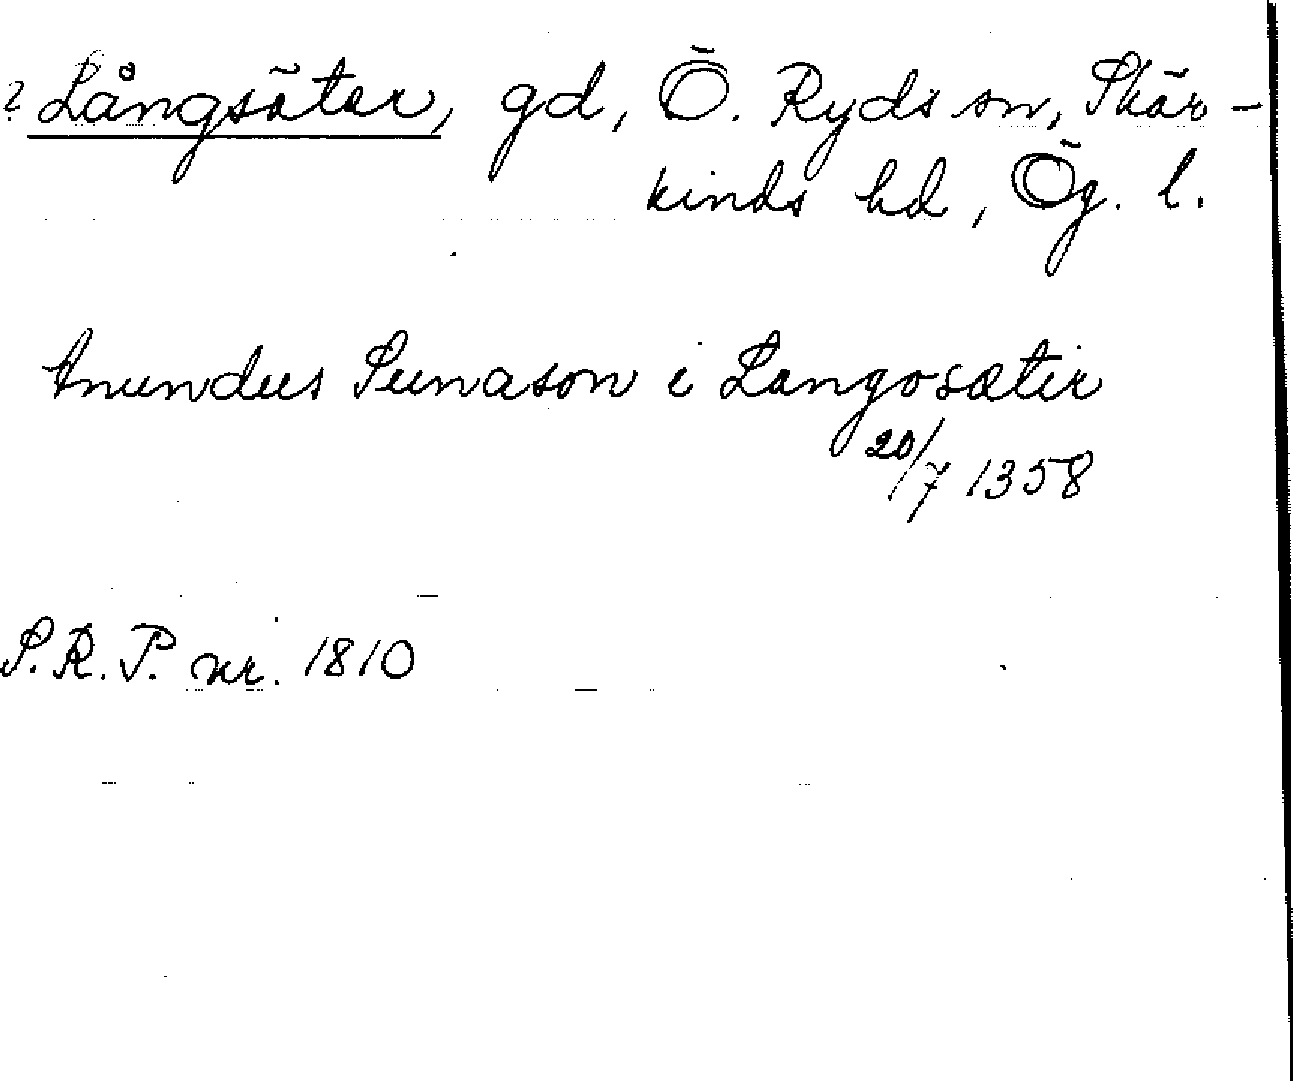 ? Långsäter, gd, Ö. Ryds sn, Skär-
kinds hd, Ög. l.
Anundus Sunason i Langosætir
20/7 1358
S.R.P. nr. 1810